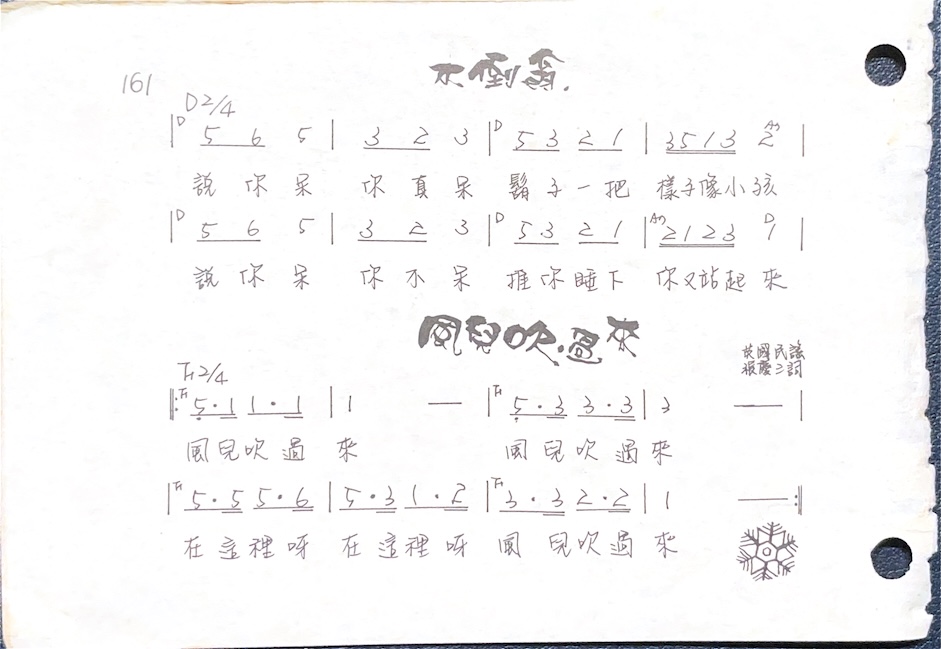 161
不倒翁.
D 2/4
|D 5 6 5 | 3 2 3 |D 5 3 2 1 | 3 5 1 3 2 |
說你呆 你真呆 鬍子一把 樣子像小孩
|D 5 6 5 | 3 2 3 |D 5 3 2 1 | 2 1 2 3 D 1 |
說你呆 你不呆 推你睡下 你又站起來
風兒吹.過來
英國民謠
張慶三詞
F 2/4
‖:F 5·1 1·1 | 1 — |F 5·3 3·3 | 3 — |
風兒吹過來 風兒吹過來
|F 5·5 5·6 | 5·3 1·2 |F 3·3 2·2 | 1 — :‖
在這裡呀 在這裡呀 風兒吹過來